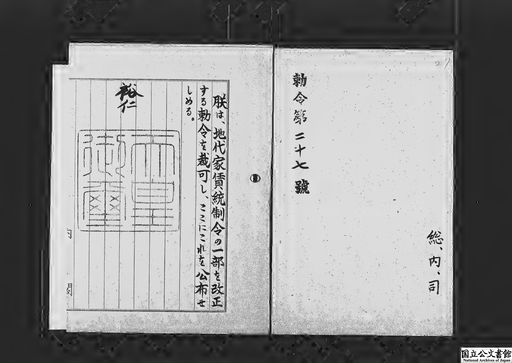 勅令第二十七號
総、内、司
朕は、地代家賃統制令の一部を改正
する勅令を裁可し、ここにこれを公布せ
しめる。
裕仁
天皇
御璽
国立公文書館
National Archives of Japan